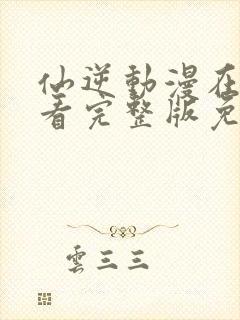 仙逆動漫在
看完整版免
雲三三